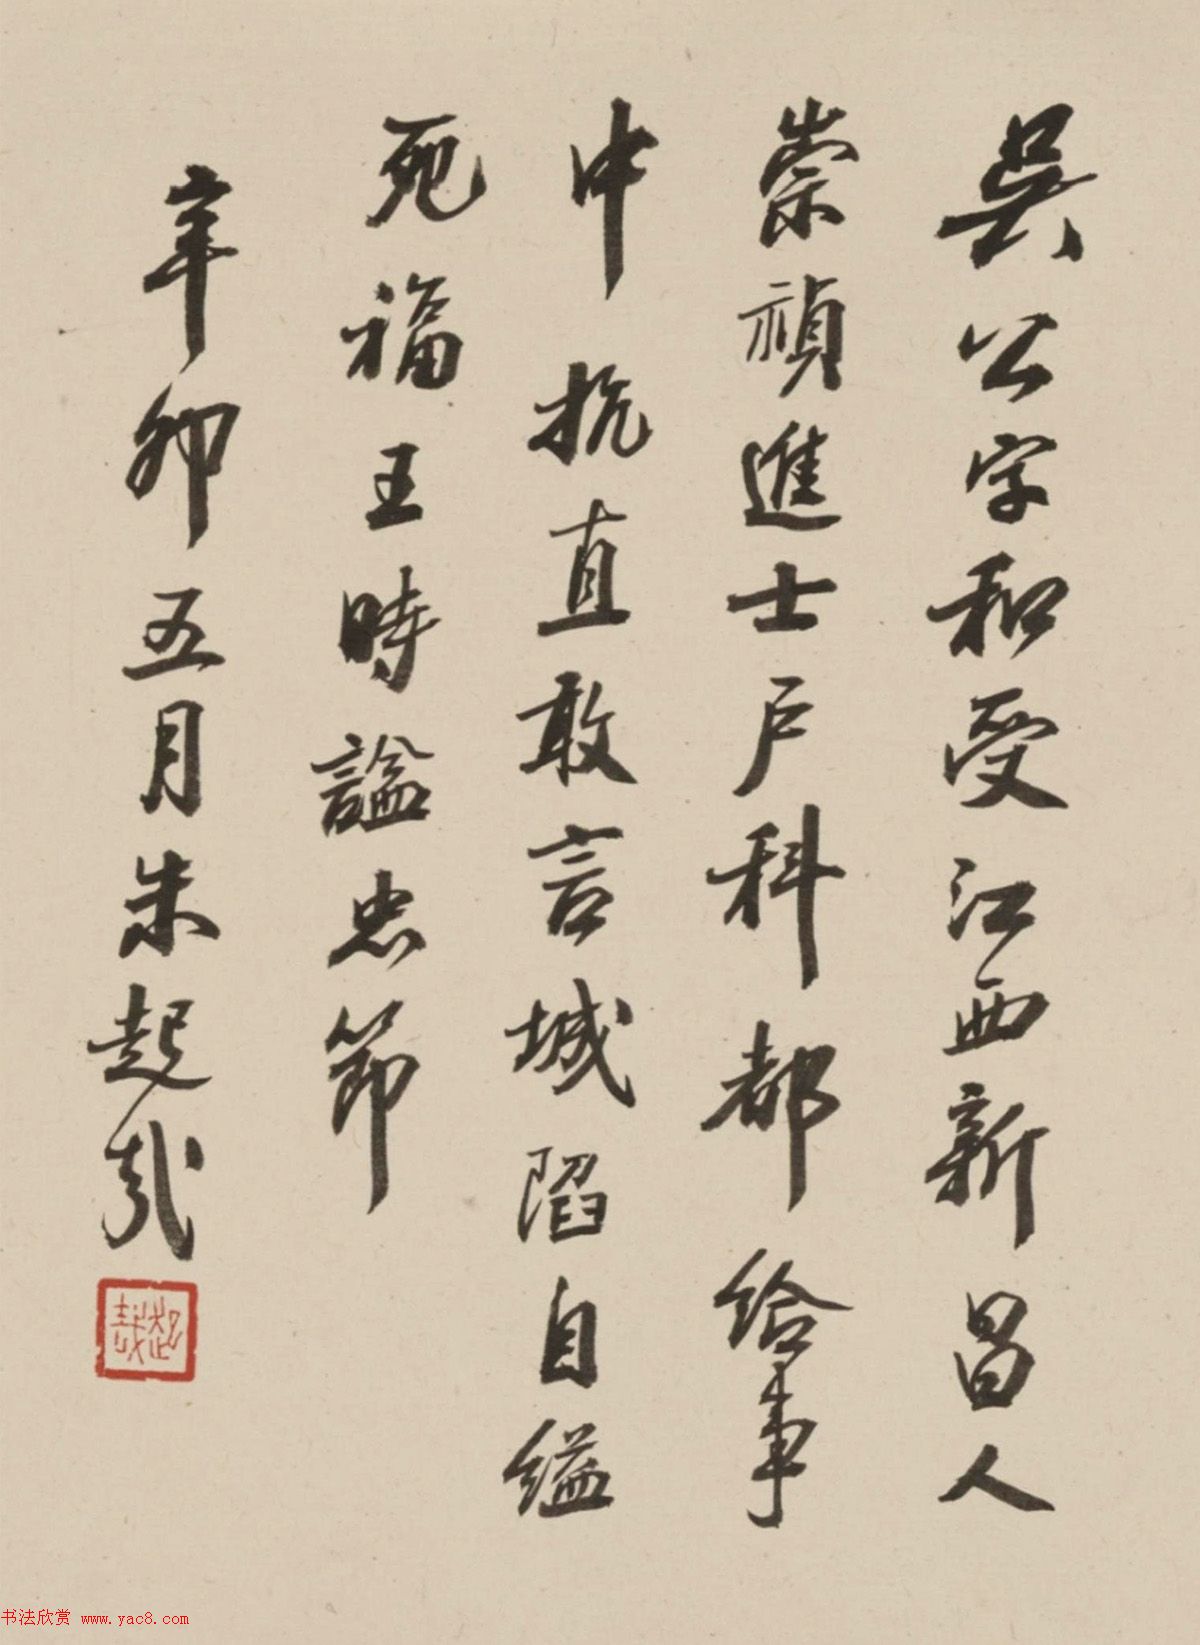 吳公字和受江西新昌人
崇禎進士戶科都給事
中抗直敢言城陷自縊
死福王時謚忠節
辛卯五月朱起哉
起哉
书法欣赏 www.yac8.com